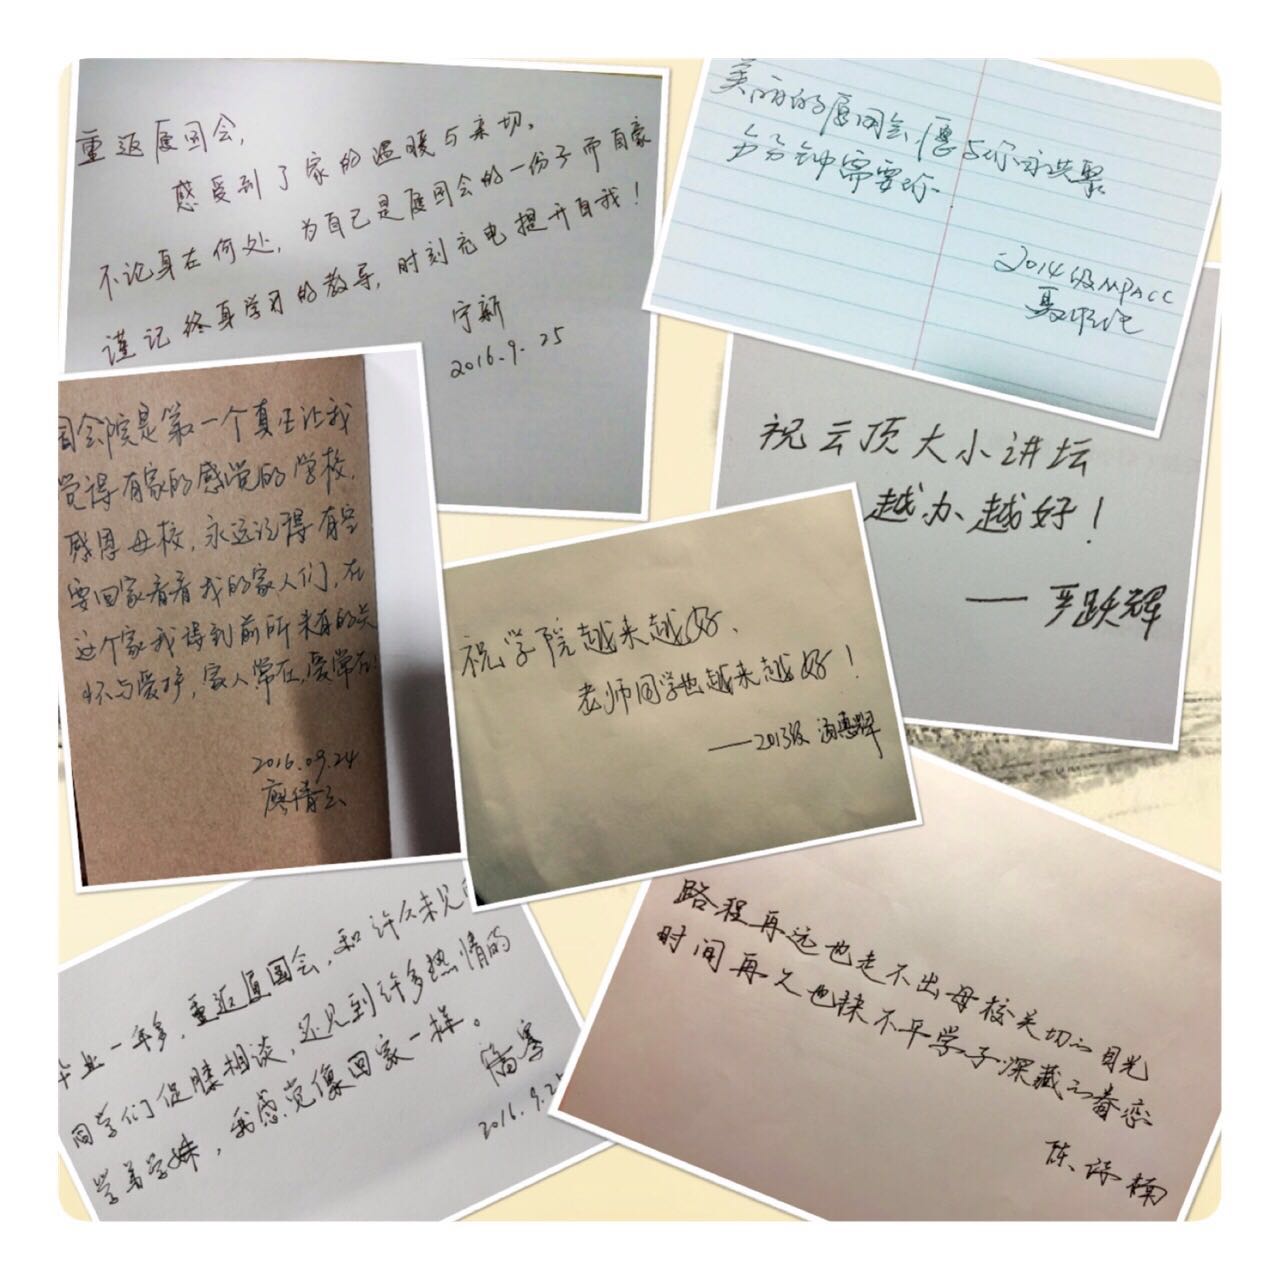 重返厦国会，
感受到了家的温暖与亲切。
不论身在何处，为自己是厦国会的一份子而自豪
谨记终身学习的教导，时刻充电提升自我！
宁新
2016.9.25
美丽的厦国会 愿与你永共聚
分分钟需要你
2014级MPACC
祝云顶大小讲坛
越办越好！
——严跃辉
国会院是第一个真正让我
觉得有家的感觉的学校，
感恩母校，永远记得有空
要回家看看我的家人们，在
这个家我得到前所未有的关
怀与爱护，家人常在，爱常在！
2016.09.24
廖倩云
祝学院越来越好、
老师同学也越来越好！
——2013级 汤惠辉
毕业一年多，重返厦国会，和许久未见的
同学们促膝相谈，还见到许多热情的
学弟学妹，我感觉像回家一样。
潘骞
2016.9.25
路程再远也走不出母校关切的目光
时间再久也抹不平学子深藏的眷恋
陈咏楠